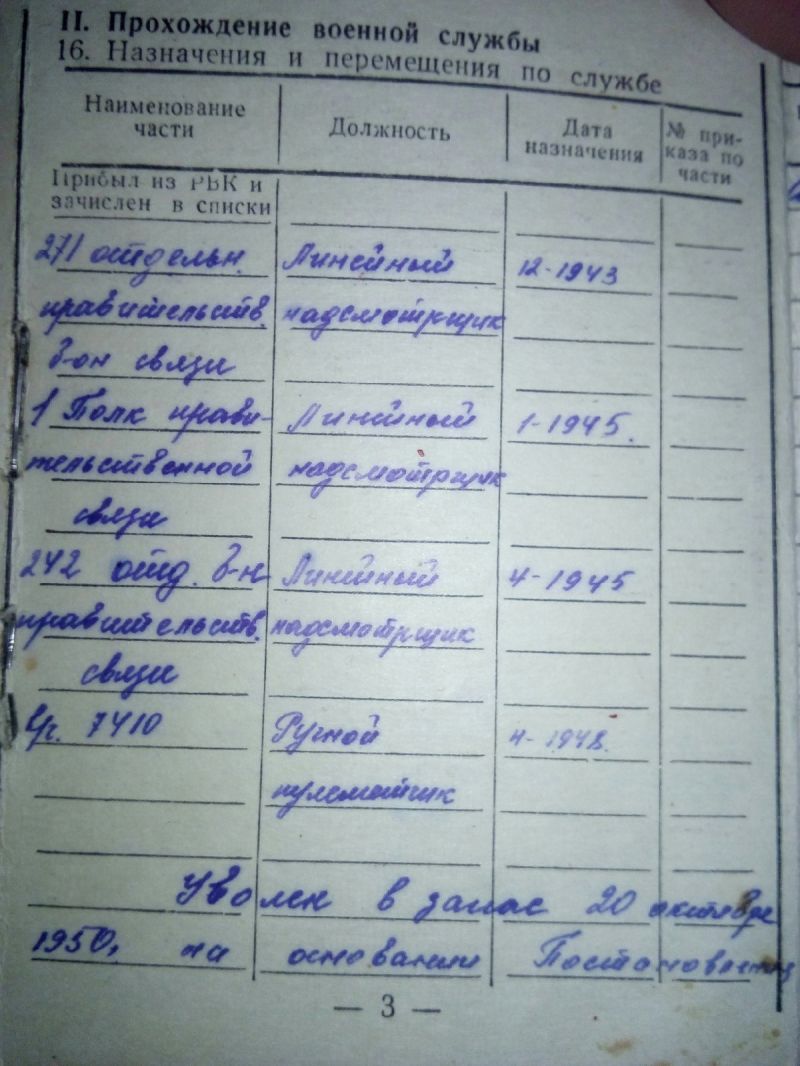 II. Прохождение военной службы
16. Назначения и перемещения по службе
Наименование части Должность Дата назначения № приказа по части
Прибыл из РВК и
зачислен в списки
271 отдельн. Линейный 12-1943
правительств. надсмотрщик
б-он связи
1 Полк прави- Линийный 1-1945.
тельственной надсмотрщик
связи
242 отд. б-н Линийный 4-1945
правительств. надсмотрщик
связи
7410 Ручной 4-1948.
пулеметчик
Уволен в запас 20 октября
1950, на основании Постановления
— 3 —